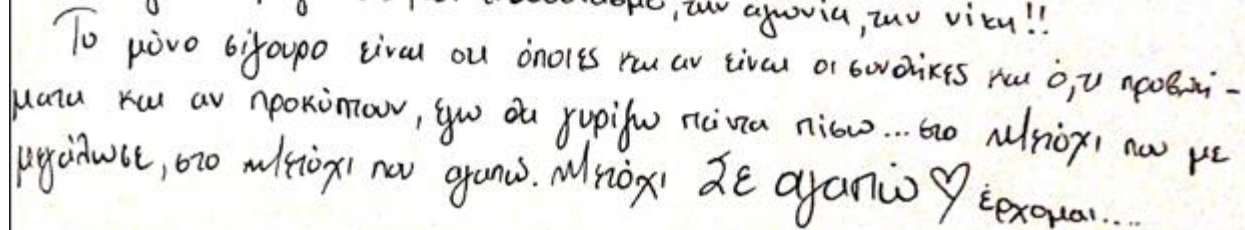 ενθουσιασμό, την αγωνία, την νίκη!!
Το μόνο σίγουρο είναι οτι όποιες και αν είναι οι συνθήκες και ό,τι προβλή-
ματα και αν προκύπτουν, εγω θα γυρίζω πάντα πίσω... στο Μετόχι που με
μεγάλωσε, στο Μετόχι που αγαπώ. Μετόχι Σε αγαπώ ♡ έρχομαι....